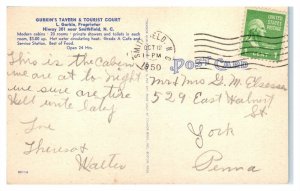 GURKIN'S TAVERN & TOURIST COURT
L. Gurkin, Proprietor
Hiway 301 near Smithfield, N. C.
Modern cabins - 20 rooms - private showers and toilets in each
room, $5.00 up. Hot water circulating heat. Grade A Cafe and
Service Station. Best of Food.
Open 24 Hrs.
This is the Cabin
we are at to night
we sure are tire
Well write lately
Love
Theresa &
Walter
OCT 12
1 PM
1950
POST CARD
Mrs & Mrs G. M. Elsesser
529 East Walnut
St.
York
Penna